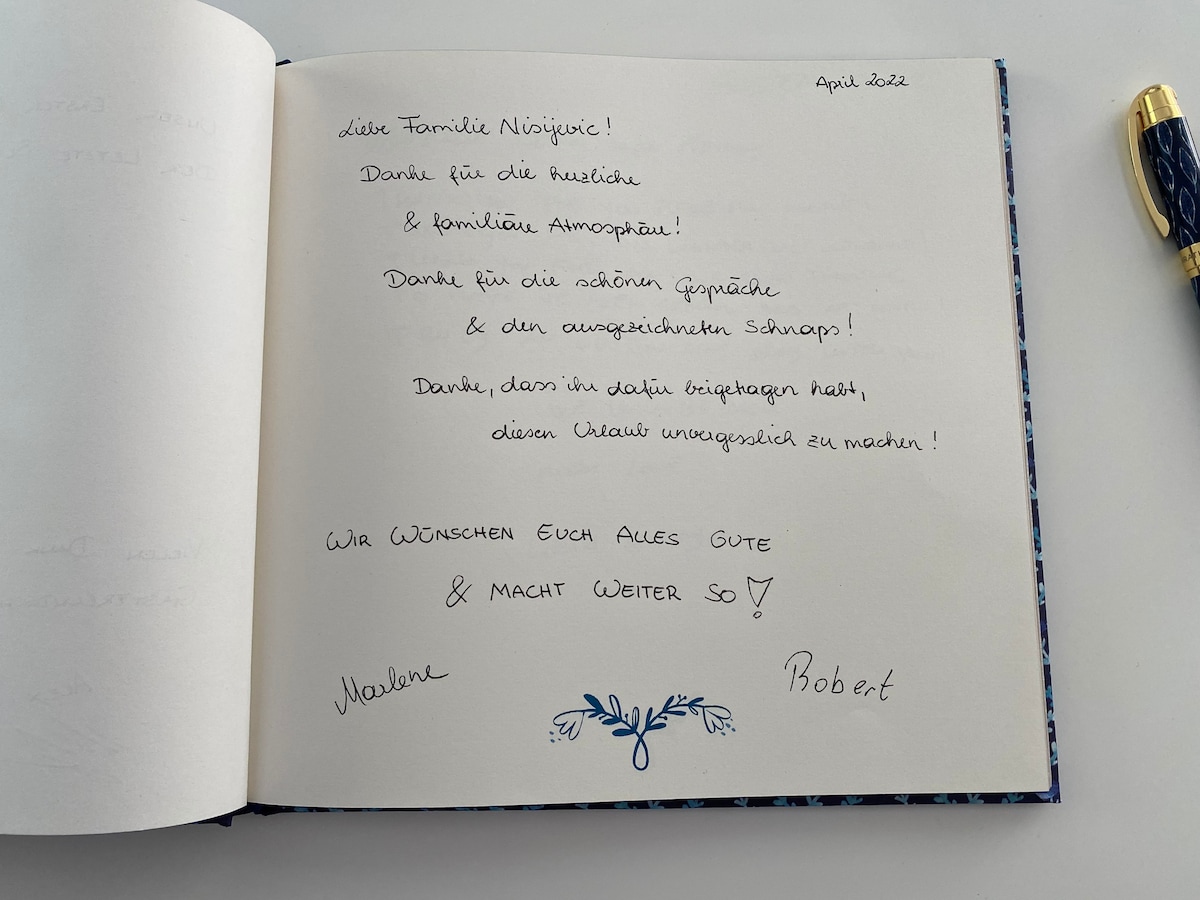 April 2022
Liebe Familie Nisijevic!
Danke für die herzliche
& familiäre Atmosphäre!
Danke für die schönen Gespräche
& den ausgezeichneten Schnaps!
Danke, dass ihr dafür beigetragen habt,
diesen Urlaub unvergesslich zu machen!
WIR WÜNSCHEN EUCH ALLES GUTE
& MACHT WEITER SO!
Marlene
Robert